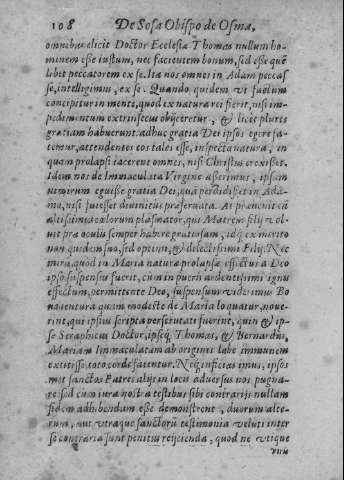 108 De Sosa Obispo de Osma,
omnibus elicit Doctor Ecclesiæ Thomas nullum ho-
minem esse iustum, nec facientem bonum, sed esse quē
libet peccatorem ex se. Ita nos omnes in Adam peccas
se, intelligimus, ex se. Quando quidem vi factum
concipitur in mente, quod ex natura rei fierit, nisi im-
pedimentum extrinsecus obijceretur, & licet plures
gratiam habuerunt. adhuc gratia Dei ipsos egere fa-
temur, attendentes eos tales esse, inspecta natura, in
quam prolapsi iacerent omnes, nisi Christus erexisset.
Idem nos de Immaculata Virgine asserimus, ipsam
nimirum eguisse gratia Dei, quā perdidisset in Ada-
mo, nisi fuisset diuinitus præseruata. At præuenit eā
altissimus cælorum plasmator, qui Matrem filij vo-
luit præ oculis semper habere gratosam, idq; ex merito
non quidem suo, sed optimi, & delectissimi Filij. Nec
mirū, quod in Maria natura prolapsæ effectus a Deo
ipso suspensus fuerit, cum in pueris ardentissimi ignis
effectum, permittente Deo, suspensum viderimus Bo
nauentura quam modeste de Maria loquatur, noue-
rint, qui ipsius scripta perscrutati fuerint, quin & ip-
se Seraphicus Doctor, ipseq; Thomas, & Bernardus,
Mariam Immaculatam ab originis labe immunem
extitisse toto corde fatentur. Neq; inficias imus, ipsos
met sanctos Patres alijs in locis aduersus nos pugna-
re sed cum iura nostra testibus sibi contrarijs nullam
fidem adhibendam esse demonstrent, duorum alte-
rum, aut vtraque sanctorū testimonia veluti inter
se contraria sunt penitus reijcienda, quod ne vtique